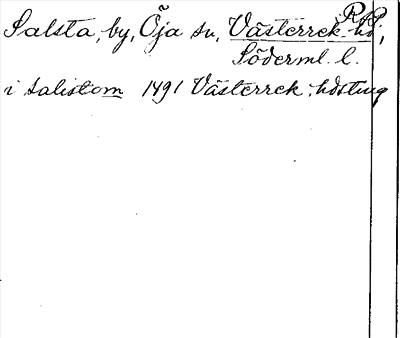 Salsta, by, Öja sn, Västerrek. hd,
Söderml. l.
i salistom 1491 Västerrek. hdsting